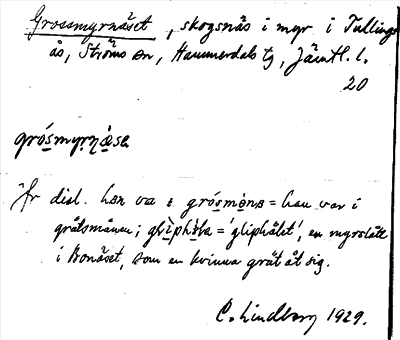 Grossmyrnäset, skogsnäs i myr i Tullings
ås, Ströms sn, Hammerdals tg, Jämtl. l.
20
grósmyrnǽsə
Jfr dial. han va ɛ grósmònə = han var i
gråtsmånen; glìphòlə = 'gliphålet', en myrslått
i Bonäset, som en kvinna grät åt sig.
C. Lindberg 1929.